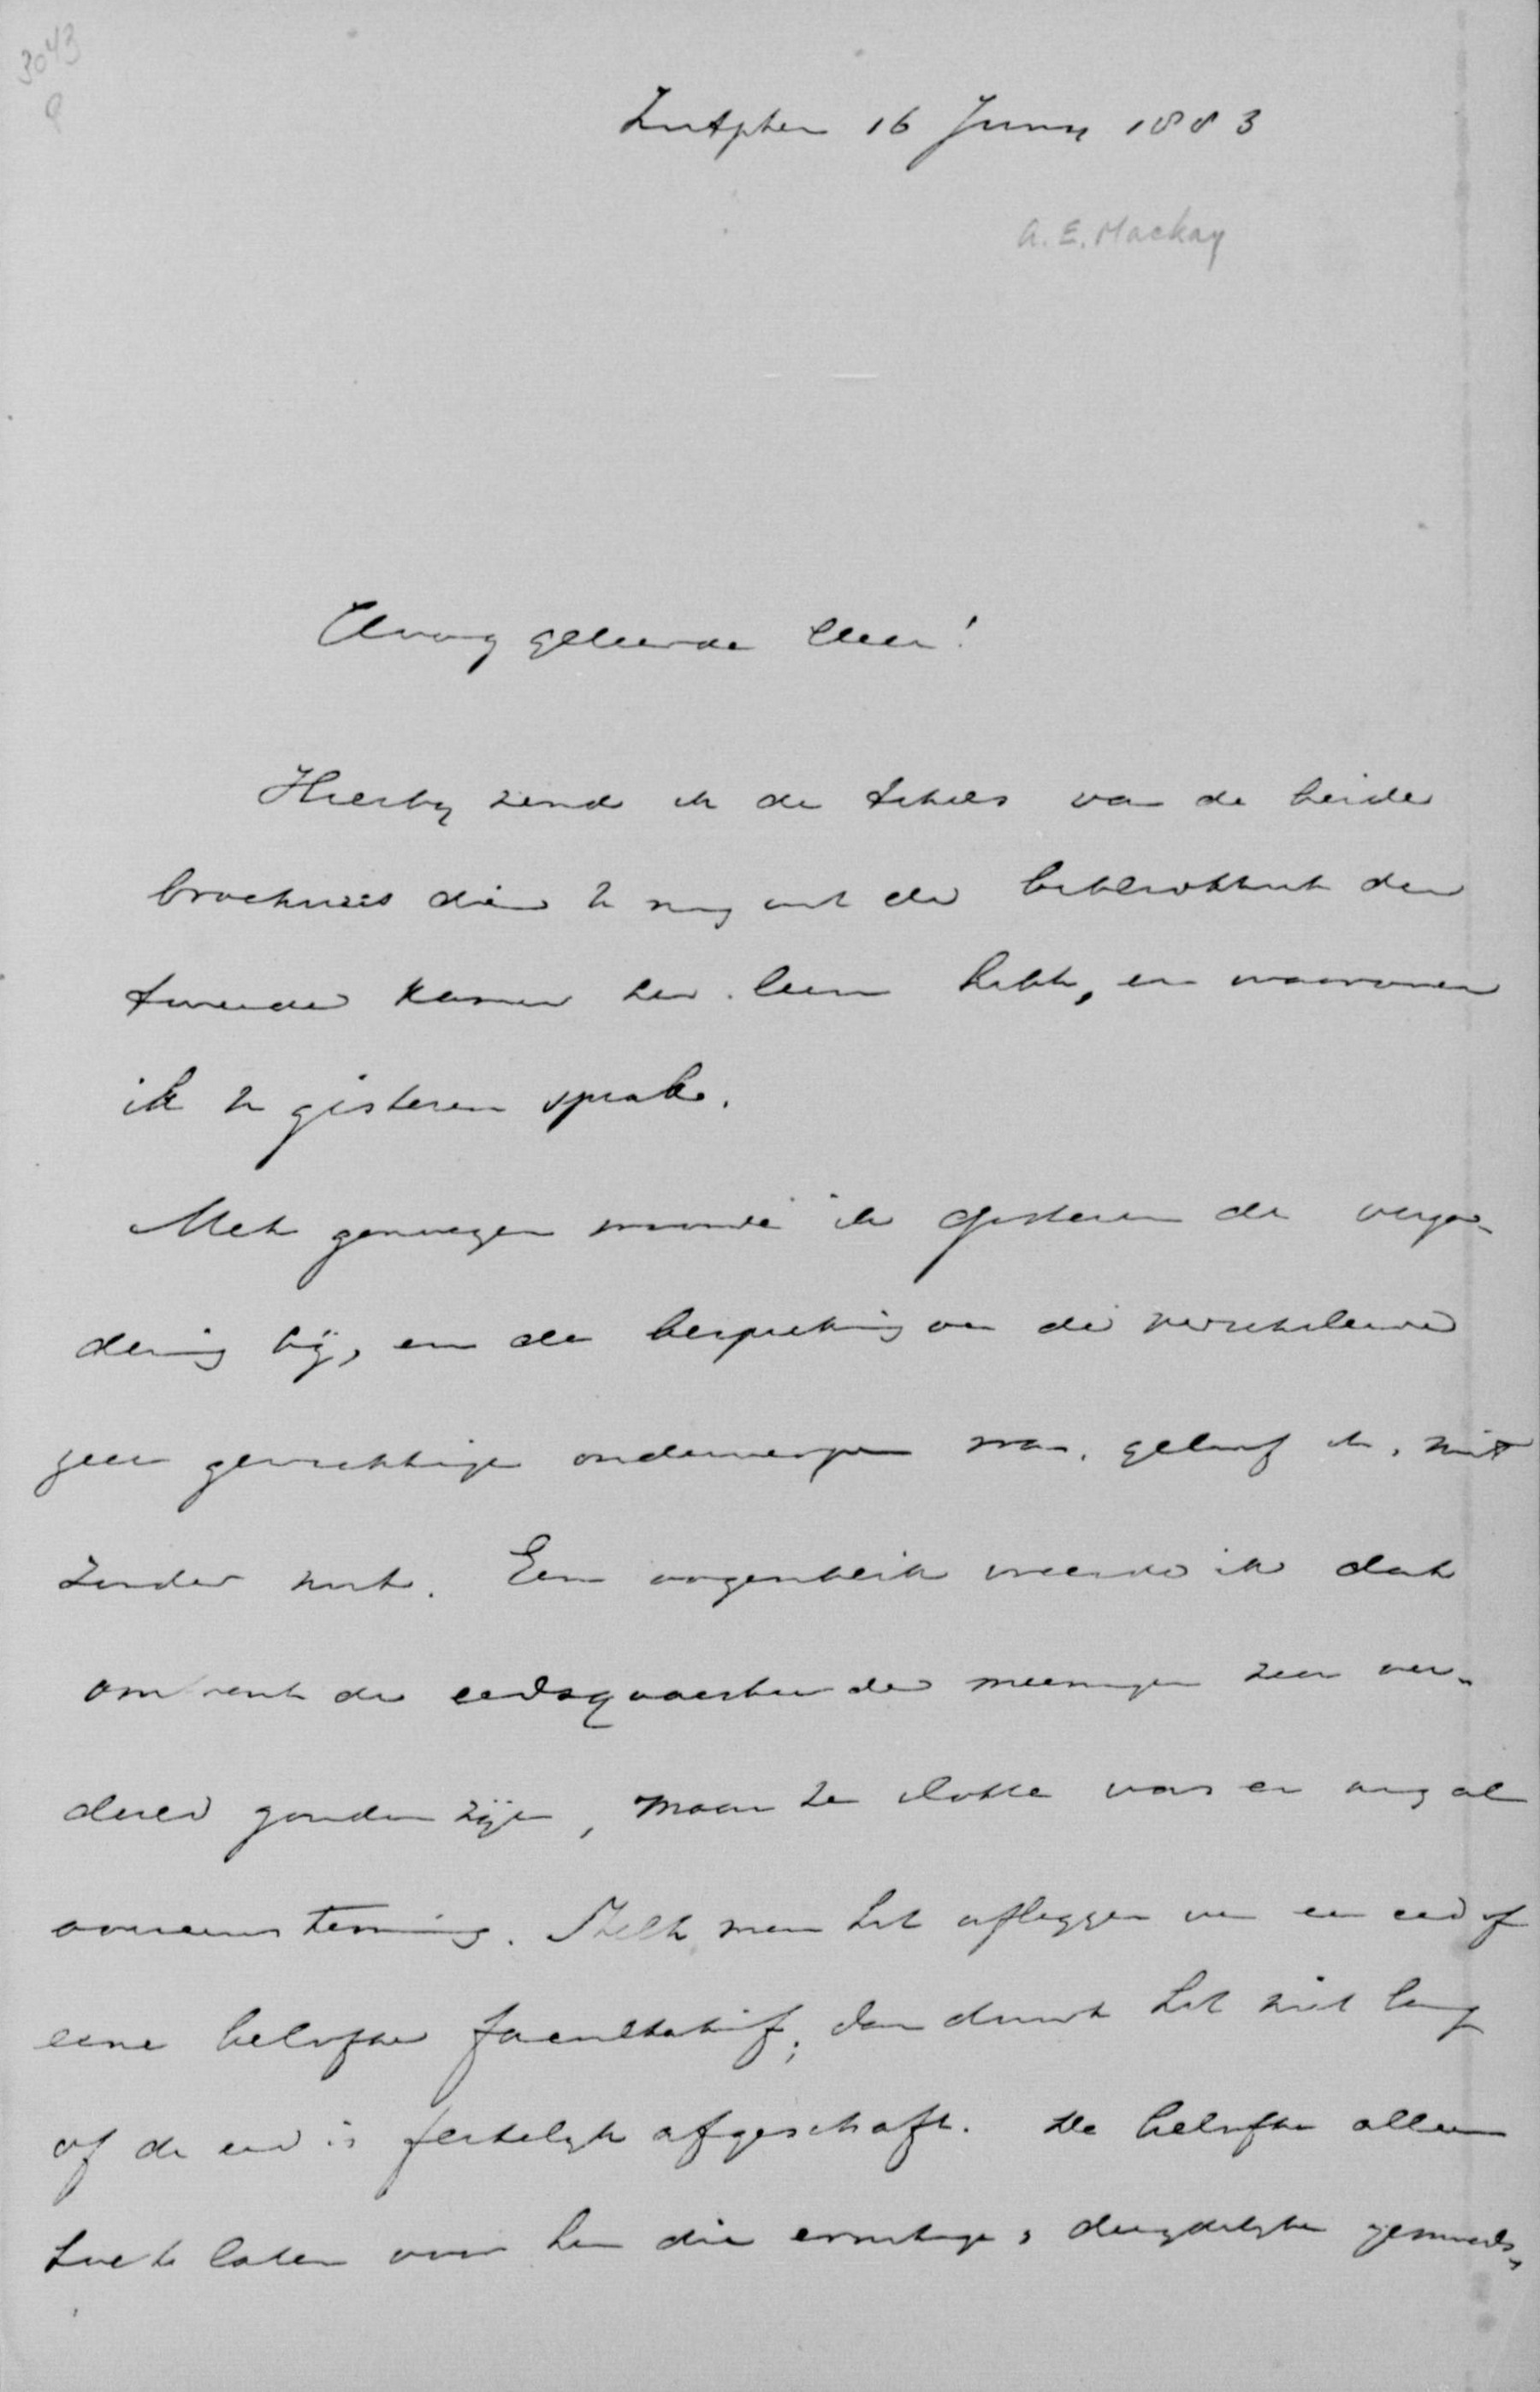 3043
Zutphen 16 Juny 1883
A. E. Mackay
Hooggeleerde Heer!
Hierby zend ik de titels van de beide
brochures die U nog uit de bibliotheek der
tweede kamer ter leen hebt, en waarover
ik U gisteren sprak.
Met genoegen woonde ik gisteren de verga-
dering bij, en de bespreking van die verschillende
zeer gewichtige onderwerpen was, geloof ik, niet
zonder nut. Een oogenblik vreesde ik dat
omtrent de eedsquaestie de meeningen zeer ver-
deeld zouden zijn, maar ten slotte was er nog al
overeenstemming. Stelt men het afleggen van een eed of
eene belofte facultatief, dan duurt het niet lang
of de eed is feitelyk afgeschaft. De belofte alleen
toe te laten voor hen die ernstige, deugdelyke gemoeds-